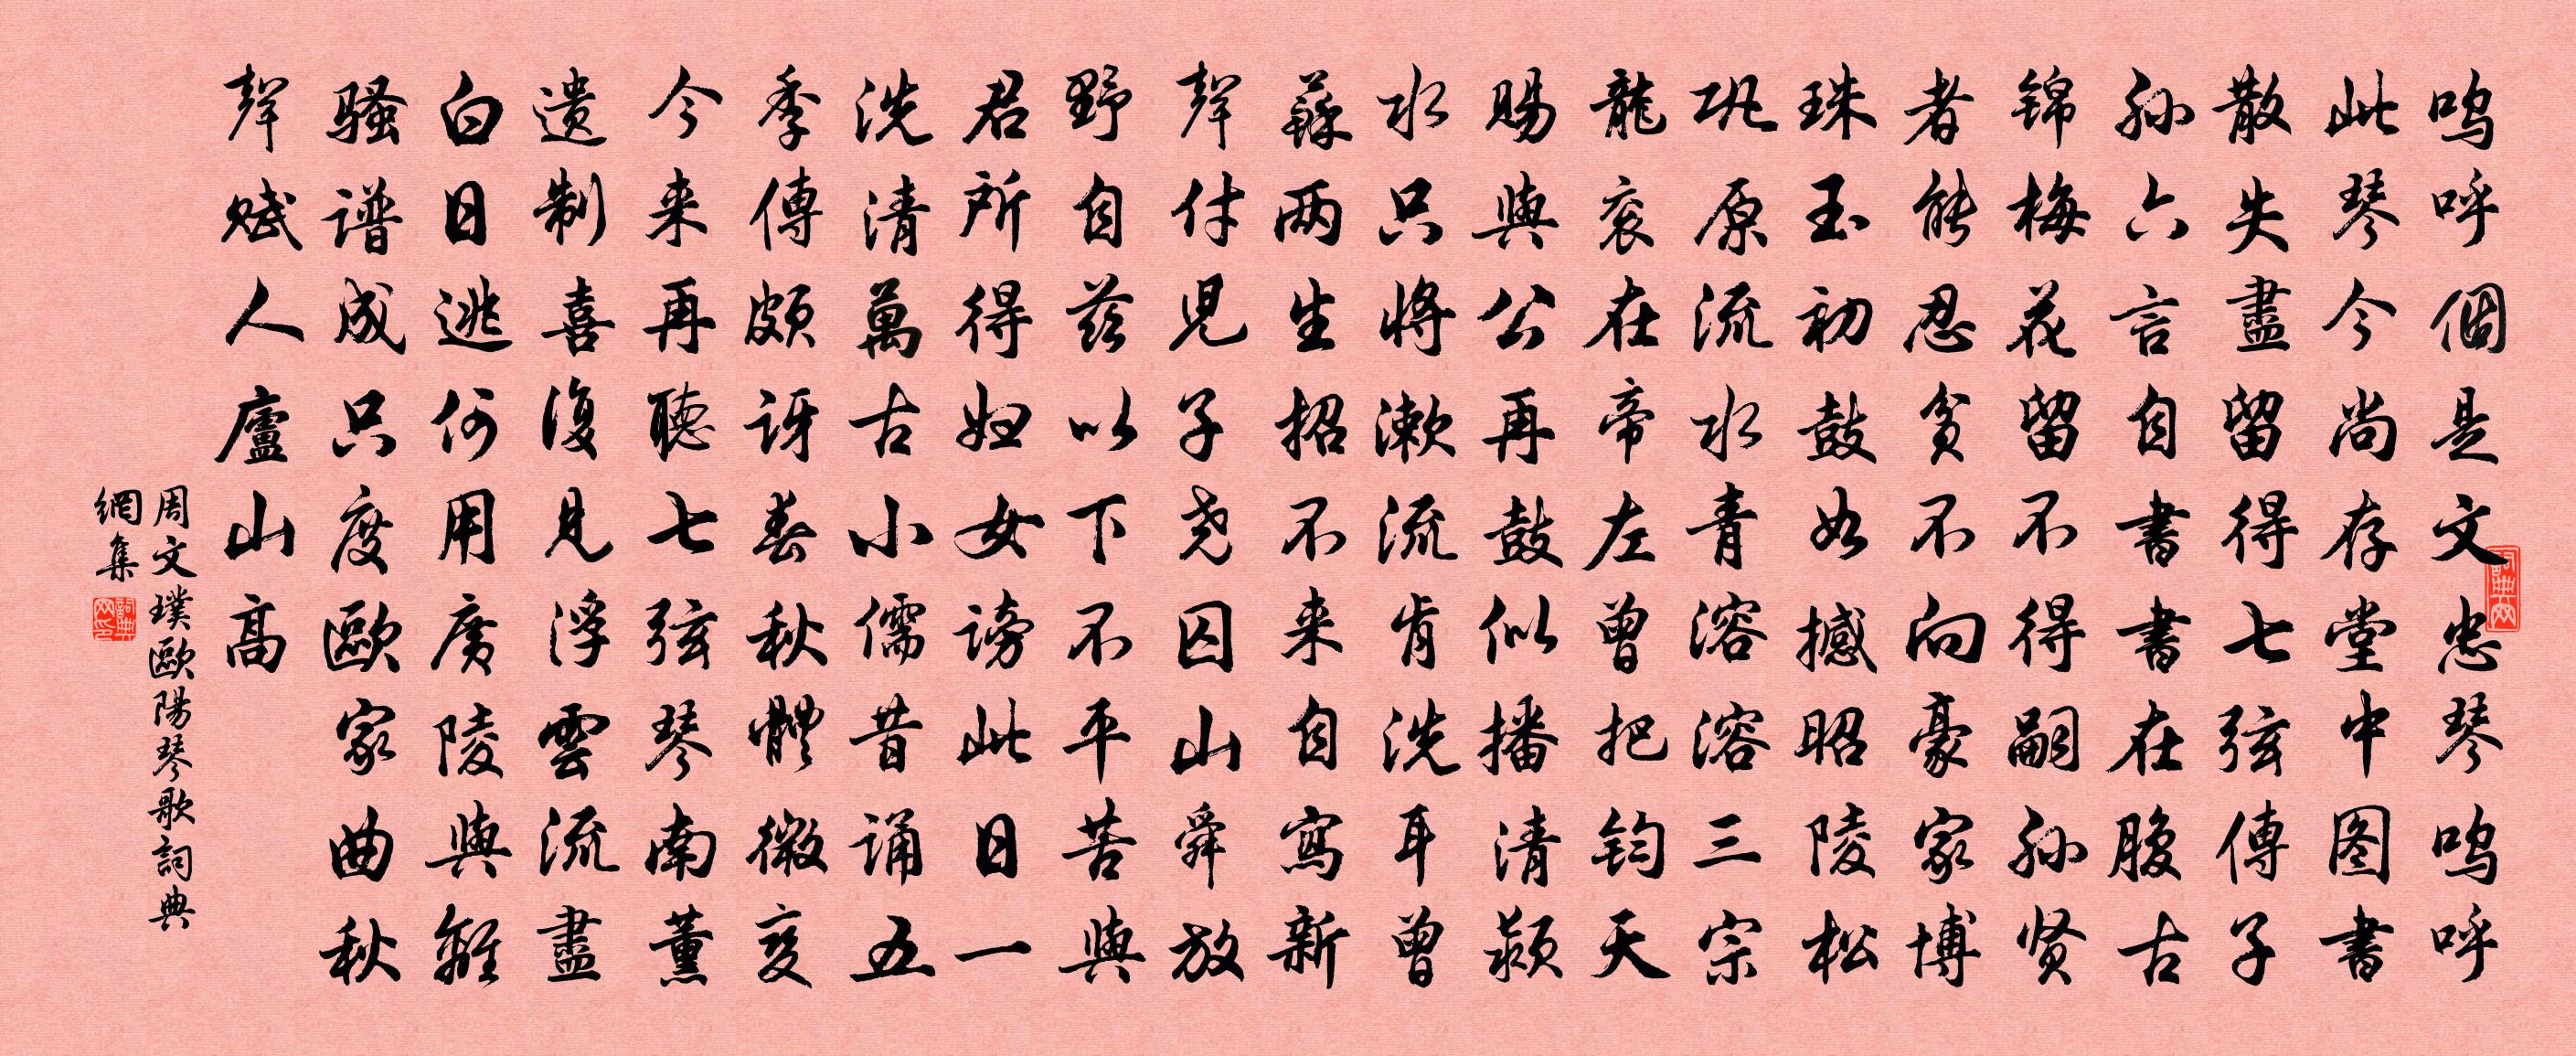 呜呼個是文忠琴呜呼
此琴今尚存堂中图書
散失盡留得七弦傳子
孙六言自書書在腹古
锦梅花留不得嗣孙贤
者能忍贫不向豪家博
珠玉初鼓如撼昭陵松
巩原流水青溶溶三宗
龍衮在帝左曾把钧天
賜與公再鼓似播清颍
水只将漱流肯洗耳曾
蘇两生招不来自寫新
聲付児子尧囚山舜放
野自兹以下不平苦與
君所得妇女谤此日一
洗清萬古小儒昔诵五
季傳頗讶春秋體微变
今来再聽七弦琴南薰
遗制喜復見浮雲流盡
白日逃何用廣陵與離
骚谱成只度歐家曲秋
聲赋人廬山高
周文璞歐陽琴歌詞典
網集
詞典网
詞典网印